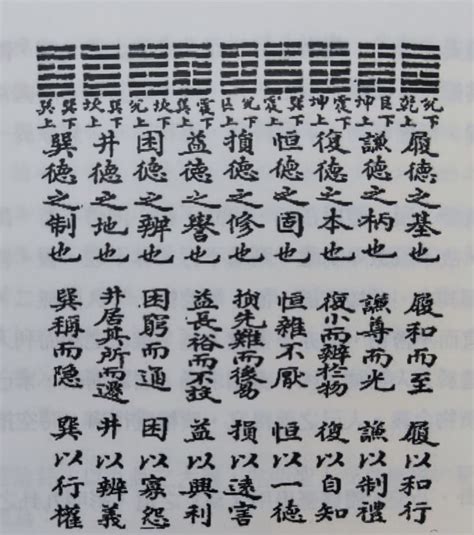 兌下乾上 履德之基也 履和而至 履以和行
艮下坤上 謙德之柄也 謙尊而光 謙以制禮
震下坤上 復德之本也 復小而辨於物 復以自知
巽下震上 恒德之固也 恒雜不厭 恒以一德
兌下艮上 損德之修也 損先難而後易 損以遠害
震下巽上 益德之譽也 益長裕而不設 益以興利
坎下兌上 困德之辨也 困窮而通 困以寡怨
巽下坎上 井德之地也 井居其所而遷 井以辨義
巽下巽上 巽德之制也 巽稱而隐 巽以行權